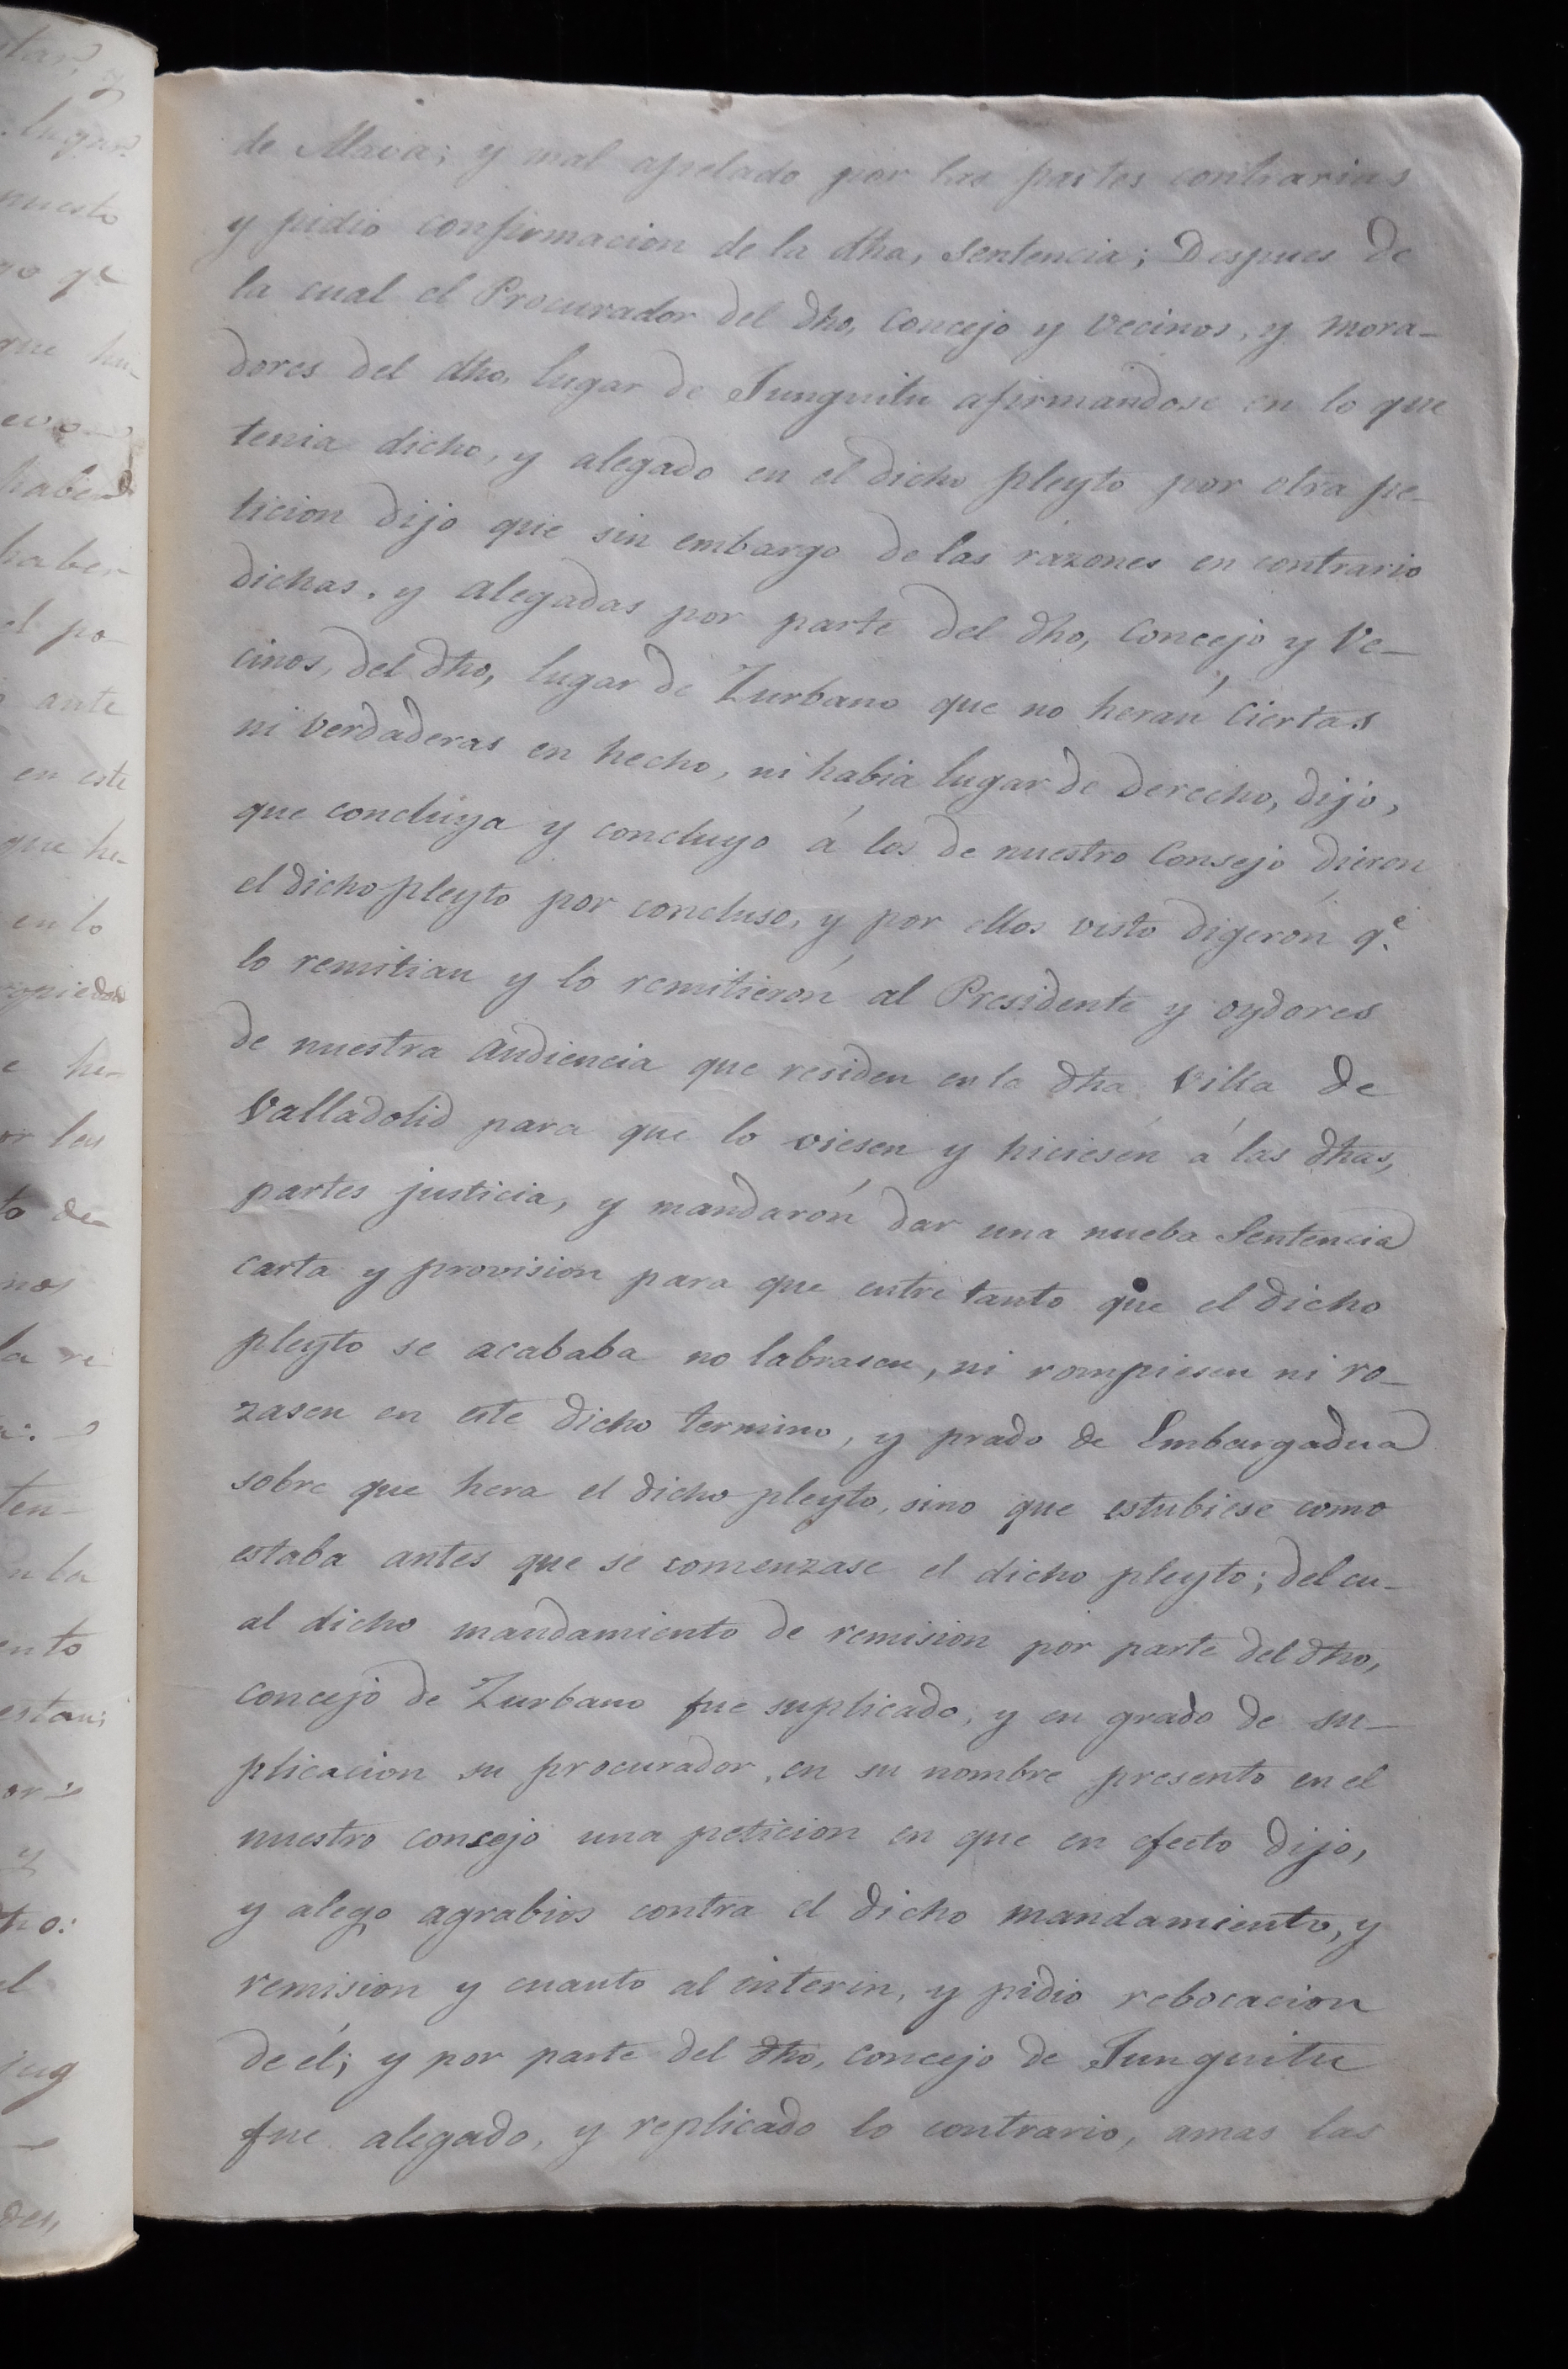 de Alava; y mal apelado por las partes contrarias
y pidio confirmacion de la dha, Sentencia; Despues de
la cual el Procurador del dho, Concejo y vecinos, y mora-
dores del dho, lugar de Junguitu afirmandose en lo que
tenia dicho, y alegado en el dicho pleyto por otra pe-
ticion dijo que sin embargo de las razones en contrario
dichas, y alegadas por parte del dho, Concejo y Ve-
cinos, del dho, lugar de Zurbano que no herán ciertas
ni verdaderas en hecho, ni habia lugar de derecho, dijo,
que concluya y concluyo á los de nuestro Consejo dieron
el dicho pleyto por concluso, y por ellos visto digerón q.e
lo remitian y lo remitierón al Presidente y oydores
de nuestra audiencia que residen en la dha Villa de
Valladolid para que lo viesen y hiciesén á las dhas,
partes justicia, y mandarón dar una nueba Sentencia
carta y provision para que entre tanto que el dicho
pleyto se acababa no labrasen, ni rompiesen ni ro-
zasen en este dicho termino, y prado de Embargadua
sobre que hera el dicho pleyto, sino que estubiese como
estaba antes que se comenzase el dicho pleyto; del cu-
al dicho mandamiento de remision por parte del dho,
concejo de Zurbano fue suplicado, y en grado de su-
plicacion su procurador, en su nombre presento en el
nuestro consejo una peticion en que en efecto dijo,
y alego agrabios contra el dicho mandamiento, y
remision y cuanto al interin, y pidio rebocacion
de él; y por parte del dho, concejo de Junguitu
fue alegado, y replicado lo contrario, amas las